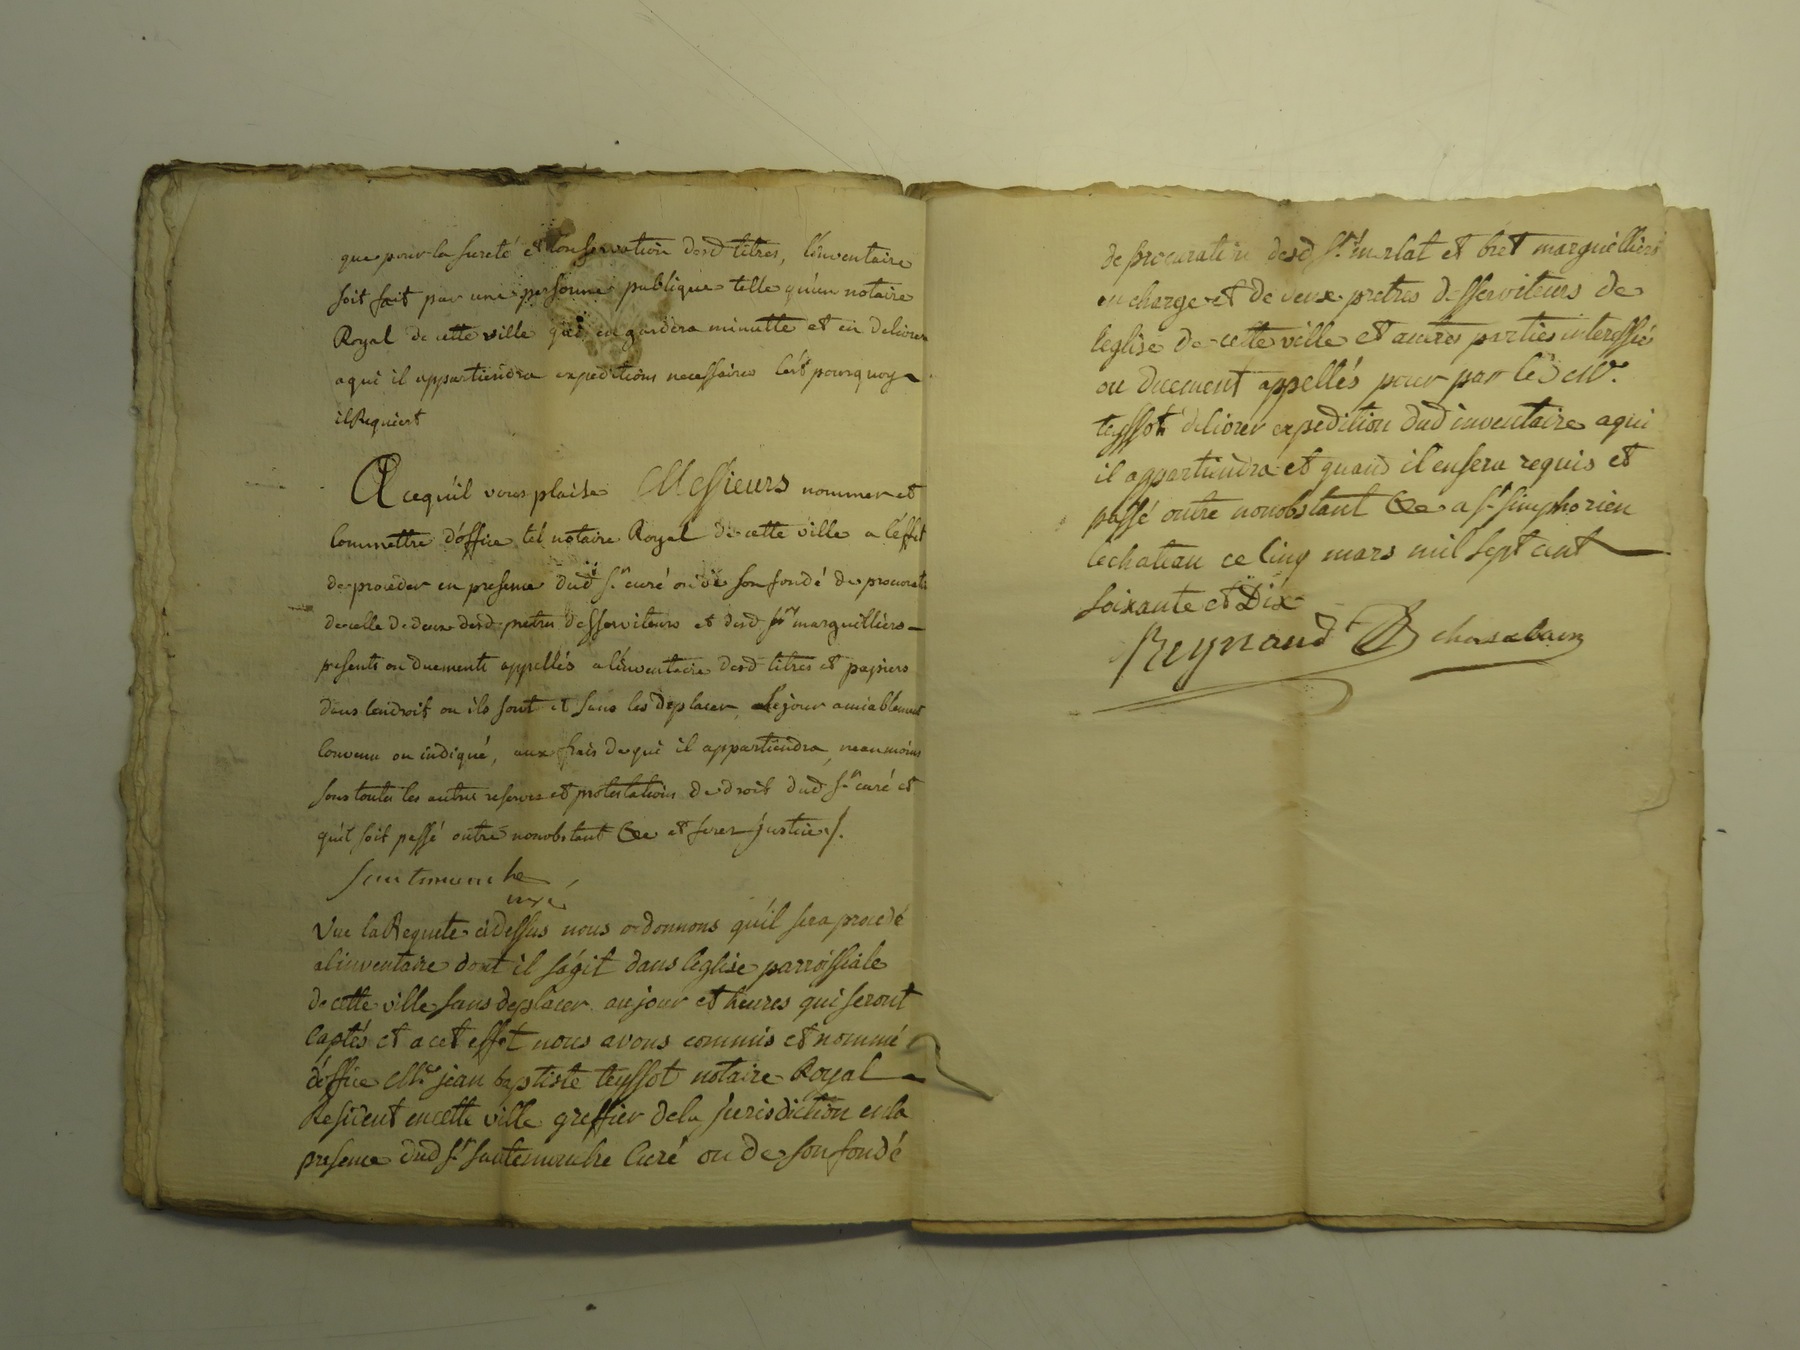 que pour la sureté et Conservation desd titres, linventaire
soit fait par une personne publique telle qu'un notaire
Royal de cette ville qui en gardera minutte et en delivrer
aqui il appartiendra expeditions necessaires C'est pourquoy
il Requiert
A cequ'il vous plaise Messieurs nommer et
Commettre d'office tel notaire Royal de cette ville a l'effet
de proceder en presence dud Sr. curé ou de son fondé de procurati
de celle de deux desd pretres desserviteurs et desd srs marguilliers
presents ou duements appellés a l'inventaire desd titres et papiers
dans lendroit ou ils sont et sans les deplacer, le jour amiablement
Convenu ou indiqué, aux frais de qui il appartiendra, neanmoins
sous toutes les autres reserves et protestations de droit dud Sr. curé et
qu'il soit passé outre nonobstant &e et ferez justice /.
Santemouche
curé
Vue la Requete ci dessus nous ordonnons qu'il sera procedé
alinventaire dont il s'agit dans leglise parroissiale
de cette ville sans deplacer au jour et heures qui seront
Captés et a cet effet nous avons commis et nommé
d'office Me. jean baptiste teyssot notaire Royal
Resident en cette ville greffier de la jurisdiction en la
presence dud Sr. santemouche Curé ou de son fondé
de procuration desd Srs. murlat et bret marguilliers
en charge et de deux pretres desserviteurs de
leglise de cette ville et autres parties interessés
ou duement appellés pour par led Me.
teyssot delivrer expedition dud inventaire a qui
il appartiendra et quand il en sera requis et
passé outre nonobstant &e a St. simphorien
lechateau ce Cinq mars mil sept cent
soixante et Dix
Reynaud chasalain